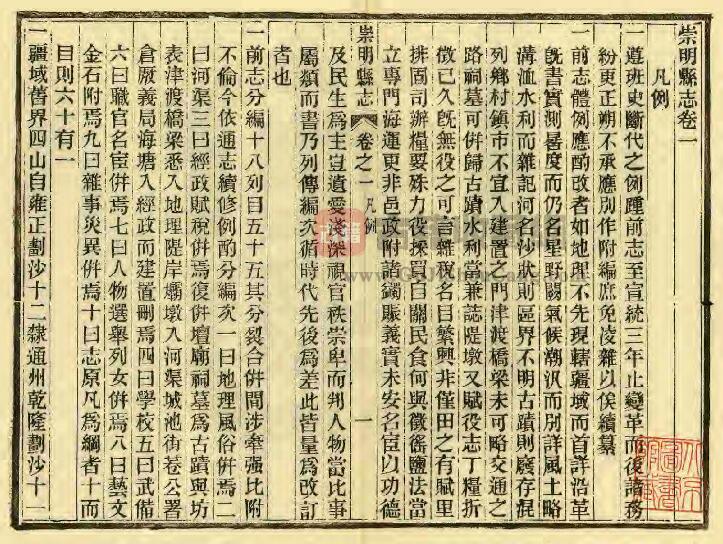 崇明縣志卷一
凡例
一遵班史斷代之例踵前志至宣統三年止變革而後諸務
紛更正朔不承應別作附編庶免凌雜以俟續纂
一前志體例應酌改者如地理不先現轄疆域而首詳沿革
既書實測晷度而仍名星野闕氣候潮汛而別詳風土略
溝洫水利而雜記河名沙狀則區界不明古蹟則廢存混
列鄉村鎮市不宜入建置之門津渡橋梁未可略交通之
路祠墓可併歸古蹟水利當兼誌隄墩又賦役志丁糧折
徵已久既無役之可言雜稅名目繁興非僅田之有賦里
排面司辦糧要殊力役採買自關民食何與徵徭鹽法當
立專門海運更非邑政附諸蠲賑義實未安名宦以功德
崇明縣志 卷之一 凡例 一
及民生為主豈遺愛淺深視官秩崇卑而邦人物當比事
屬類而書乃列傳編次循時代先後為差此皆量為改訂
者也
一前志分編十八列目五十五其分裂合併間涉牽強比附
不倫今依通志續修例酌分編次一曰地理風俗併焉二
曰河渠三曰經政賦稅併焉復併壇廟祠墓為古蹟與坊
表津渡橋梁悉入地理隄岸壩墩入河渠城池街巷公署
倉廒義局海塘入經政而建置刪焉四曰學校五曰武備
六曰職官名宦併焉七曰人物選舉列女併焉八曰藝文
金石附焉九曰雜事災異併焉十曰志原凡為綱者十而
目則六十有一
一疆域舊界四山自雍正劃沙十二隸通州乾隆劃沙十一